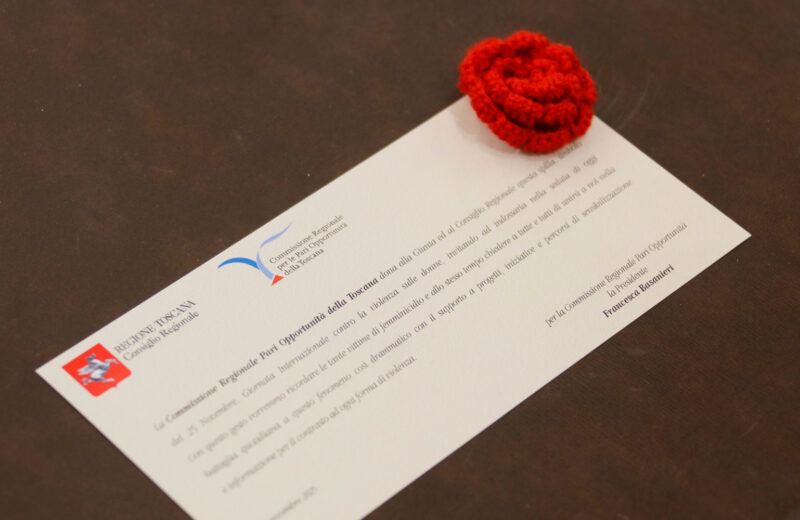 REGIONE TOSCANA
Consiglio Regionale
Commissione Regionale
per le Pari Opportunità
della Toscana
La Commissione Regionale Pari Opportunità della Toscana dona alla Giunta ed al Consiglio Regionale questa spilla,
del 25 Novembre, Giornata Internazionale contro la violenza sulle donne, invitando ad indossarla nella seduta di oggi
Con questo gesto vorremmo ricordare le tante vittime di femminicidio e allo stesso tempo chiedere a tutte e tutti di unirsi a noi nella
battaglia quotidiana a questo fenomeno così drammatico con il supporto a progetti, iniziative e percorsi di sensibilizzazione
e informazione per il contrasto ad ogni forma di violenza.
per la Commissione Regionale Pari Opportunità
la Presidente
Francesca Basanieri
novembre 2025